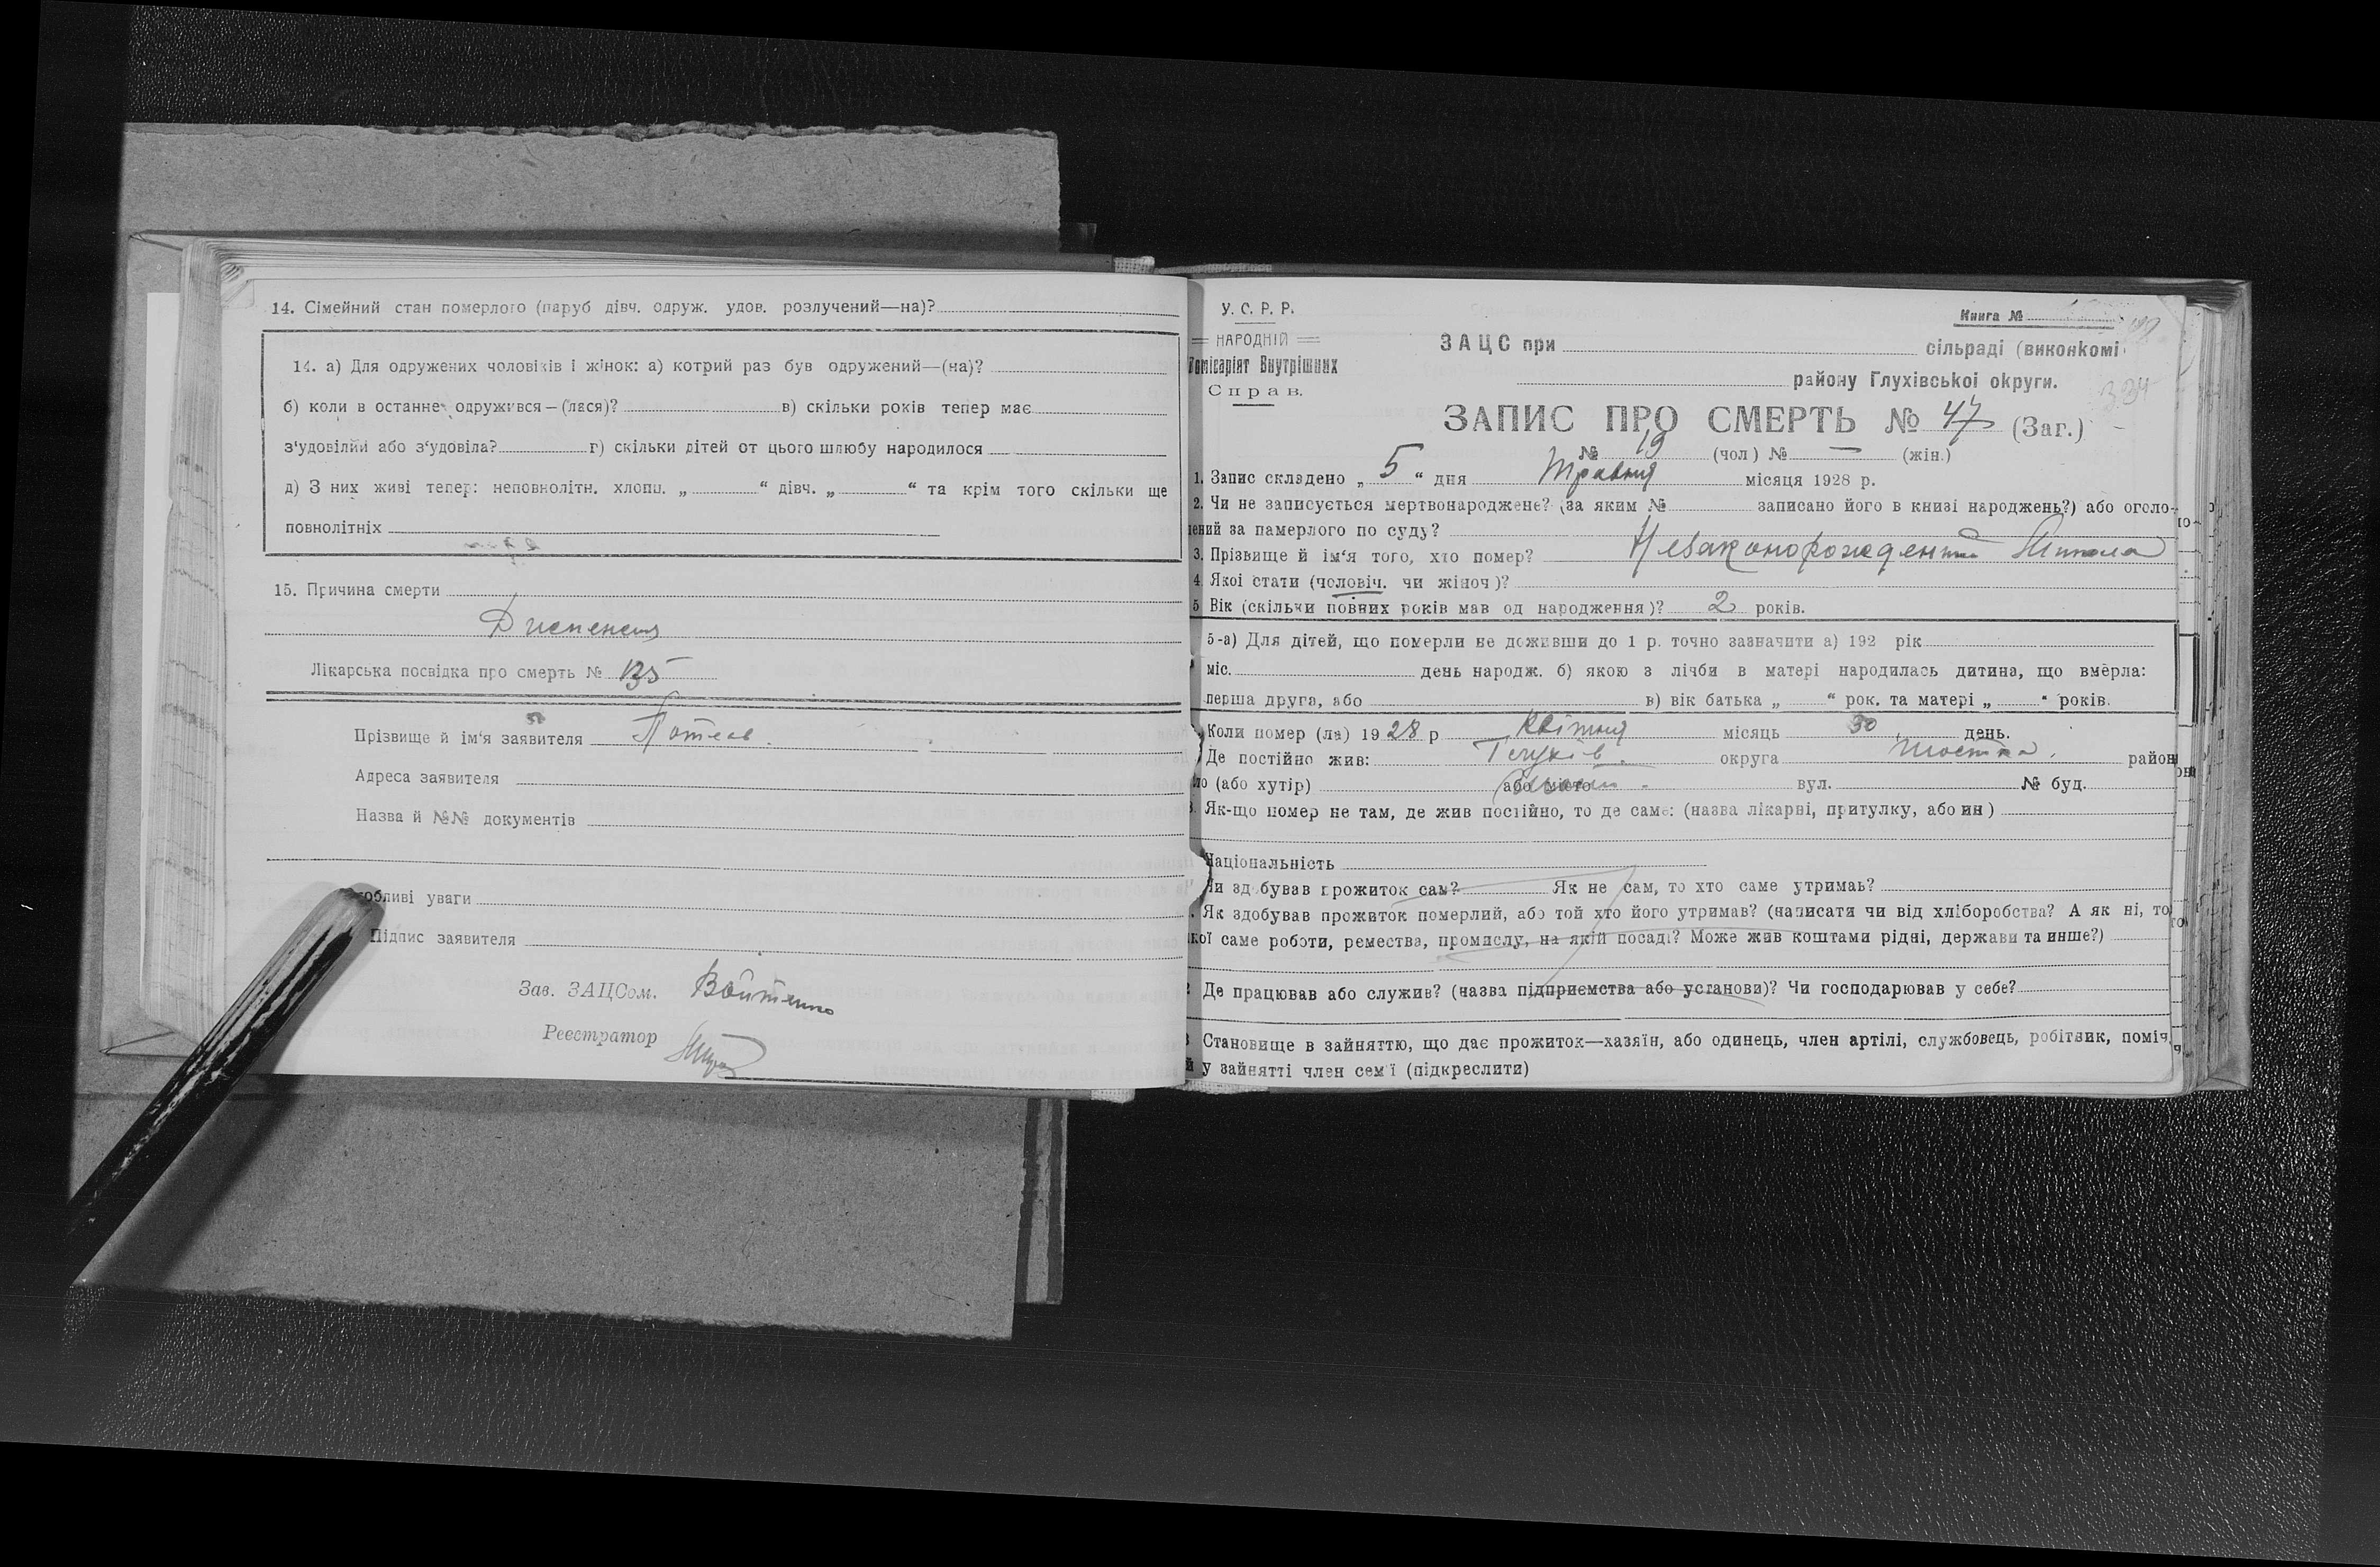 14. Сімейний стан померлого (паруб дівч. одруж. удов. розлучений—на)?
14. а) Для одружених чоловіків і жінок: а) котрий раз був одружений—(на)?
б) коли в останнє одружився—(лася)? в) скільки років тепер має
з'удовілий або з'удовіла? г) скільки дітей от цього шлюбу народилося
д) З них живі тепер: неповнолітн. хлопц. „ “ дівч. „ “ та крім того скільки ще
повнолітніх
15. Причина смерти
Диспенсия
Лікарська посвідка про смерть № 135
Прізвище й ім'я заявителя Потеев.
Адреса заявителя
Назва й №№ документів
обливі уваги
Підпис заявителя
Зав. ЗАЦСом. Войтенко
Реєстратор
У. С. Р. Р.
НАРОДНІЙ
Комісаріят Внутрішних
Справ.
Книга №
ЗАЦС при сільраді (виконкомі
району Глухівської округи.
334
ЗАПИС ПРО СМЕРТЬ № 47 (Заг.)
№ 19 (чол) № — (жін.)
1. Запис складено „ 5 “ дня Травня місяця 1928 р.
2. Чи не записується мертвонароджене? (за яким № записано його в книзі народжень?) або оголо-
лений за памерлого по суду?
3. Прізвище й ім'я того, хто помер? Незаконорожденний Микола
4. Якої стати (чоловіч. чи жіноч)?
5 Вік (скільки повних років мав од народження)? 2 років.
5-а) Для дітей, що померли не доживши до 1 р. точно зазначити а) 192 рік
міс. день народж. б) якою з лічби в матері народилась дитина, що вмерла:
перша друга, або в) вік батька „ “ рок. та матері „ “ років.
Коли помер (ла) 1928 р Квітня місяць 30 день.
Де постійно жив: Глухів. округа Шостка. район
(або хутір) або місто вул. № буд.
Як-що помер не там, де жив постійно, то де саме: (назва лікарні, притулку, або ин)
Національність
Чи здобував прожиток сам? Як не сам, то хто саме утримав?
Як здобував прожиток померлий, або той хто його утримав? (написати чи від хліборобства? А як ні, то
кої саме роботи, ремества, промислу, на якій посаді? Може жив коштами рідні, держави та инше?)
Де працював або служив? (назва підприємства або установи)? Чи господарював у себе?
Становище в зайняттю, що дає прожиток—хазяїн, або одинець, член артілі, службовець, робітник, поміч.
й у зайнятті член сем'ї (підкреслити)